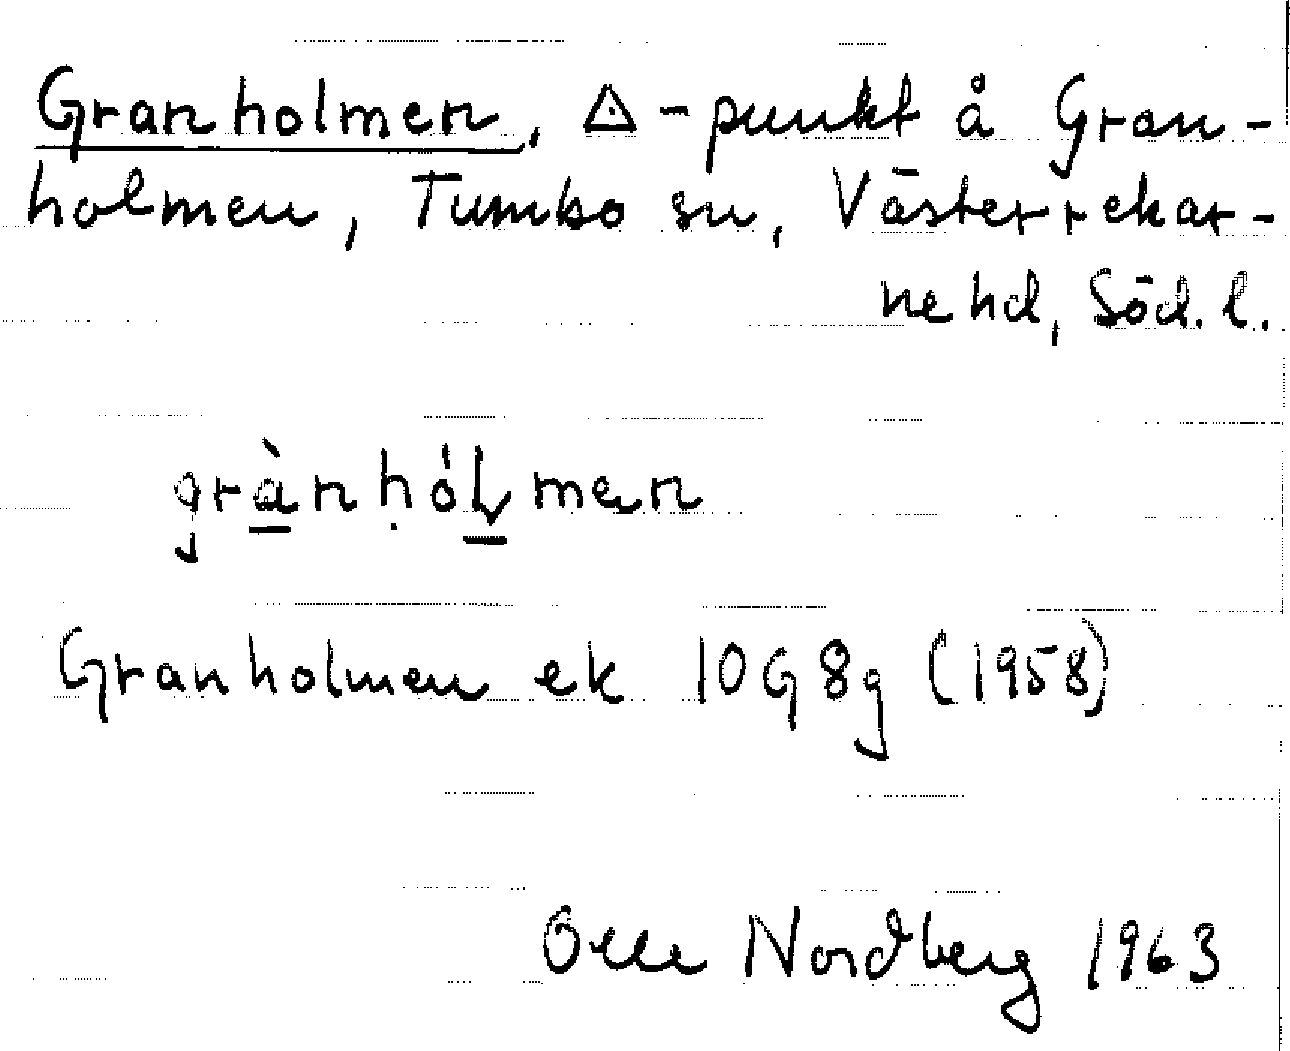 Granholmen, △-punkt å Gran-
holmen, Tumbo sn, Västerrekar-
ne hd, Söd. l.
grànhólmen
Granholmen ek 10G8g (1958)
Olle Nordberg 1963